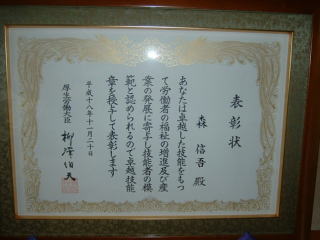 表彰状
森 信吾 殿
あなたは卓越した技能をもつ
て労働者の福祉の増進及び産
業の発展に寄与し技能者の模
範と認められるので卓越技能
章を授与して表彰します
平成十八年十一月二十日
厚生労働大臣
柳澤伯夫